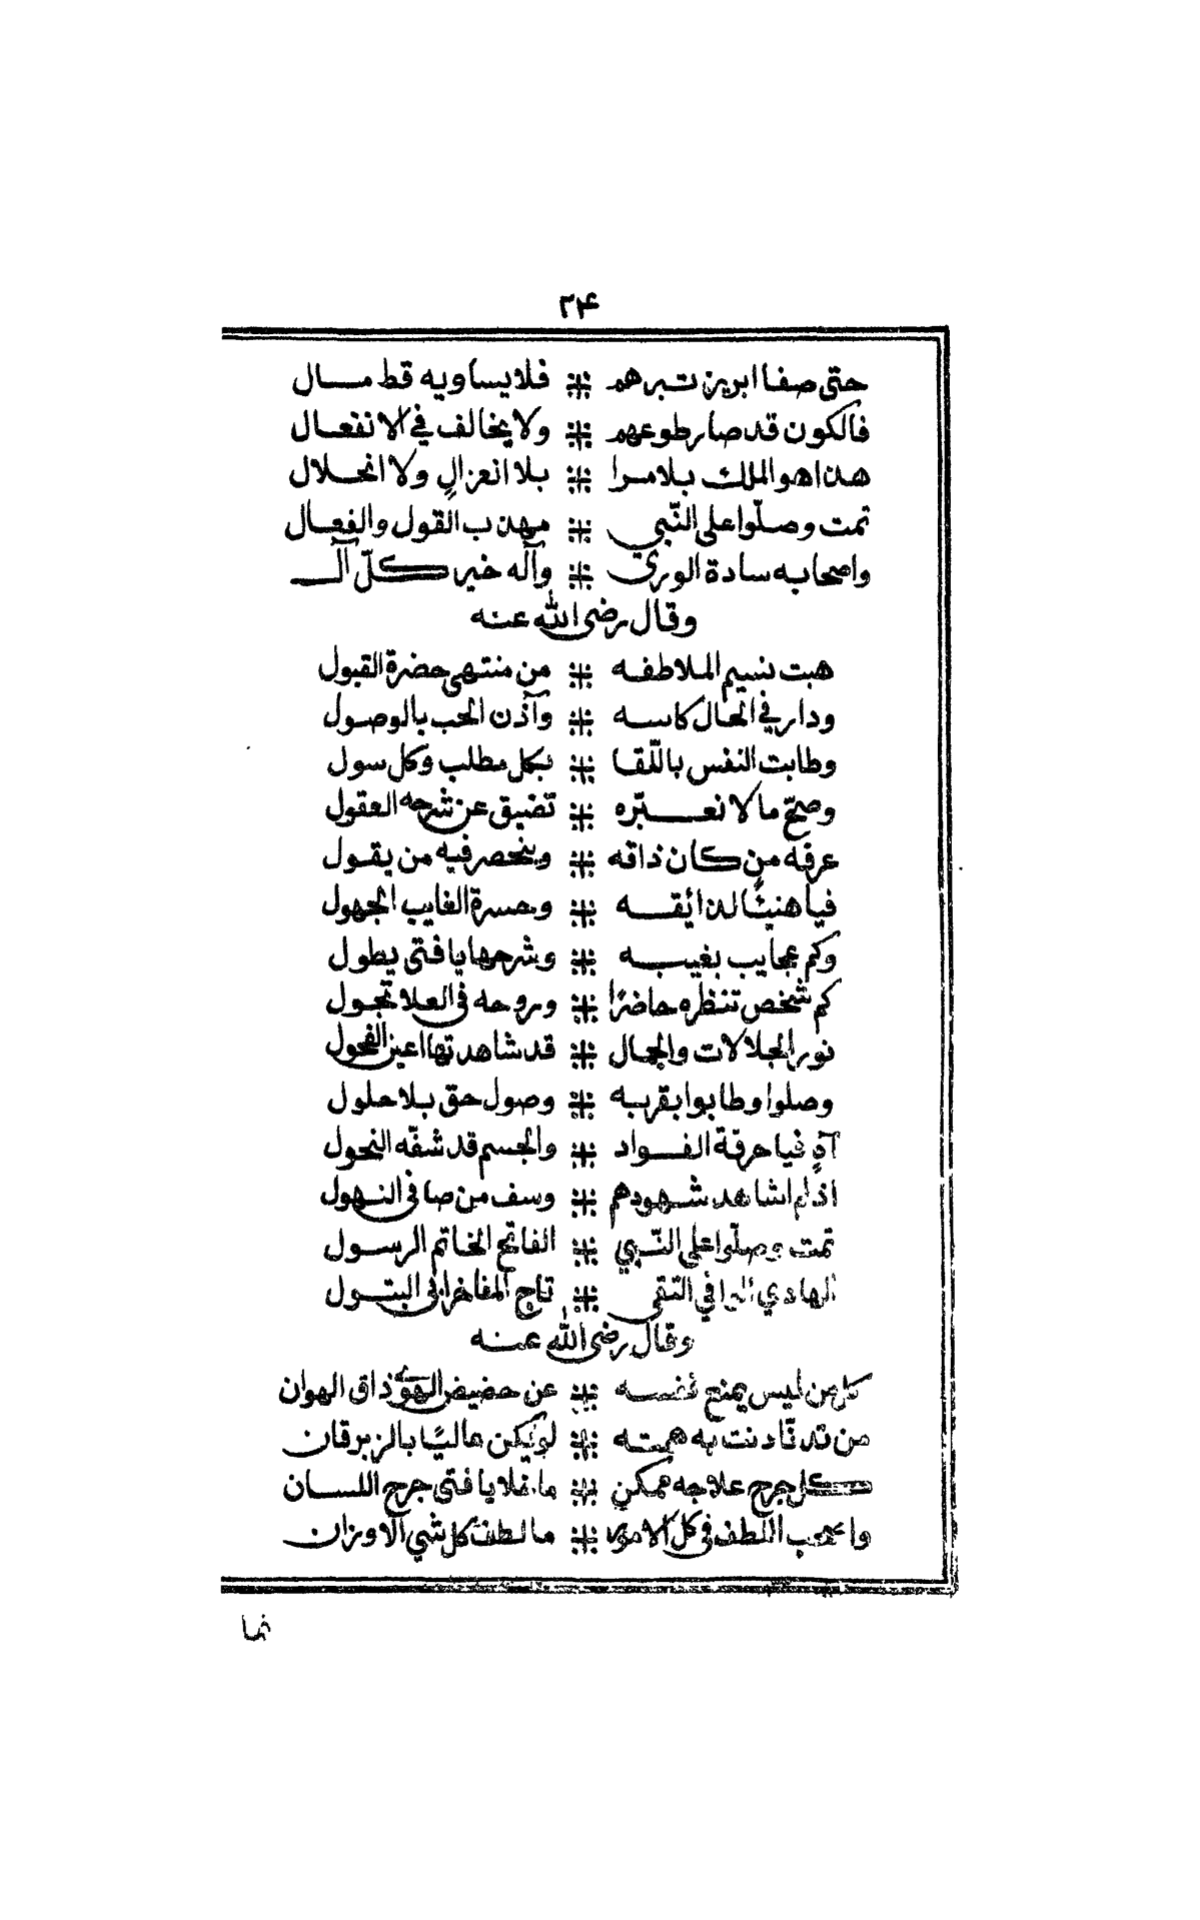 ٣۴
حتى صفا ابريز تبرهم ⁘ فلا يساويه قط مال
فالكون قد صار طوعهم ⁘ ولا يخالف في الانفعال
هذا هو الملك بلا مرا ⁘ بلا انعزالٍ ولا انحلال
تمت وصلّوا على النّبي ⁘ مهذب القول والفعال
واصحابه سادة الورى ⁘ وآله خير كلّ آل
وقال رضى الله عنه
هبت نسيم الملاطفه ⁘ من منتهى حضرة القبول
ودار في الحال كاسه ⁘ وآذن الحب بالوصول
وطابت النفس باللّقا ⁘ بكل مطلب وكل سول
وصحّ ما لا نعبّره ⁘ تضيق عن شرحه العقول
عرفه من كان ذاقه ⁘ وينحصر فيه من يقول
فيا هنيئًا لذايقه ⁘ وحسرة الغايب الجهول
وكم عجايب بغيبه ⁘ وشرحها يا فتى يطول
كم شخص تنظره حاضرًا ⁘ وروحه فى العلا تجول
نور الجلالات والجمال ⁘ قد شاهدتها اعين الفحول
وصلوا وطابوا بقربه ⁘ وصول حق بلا حلول
آهٍ فيا حرقة الفواد ⁘ والجسم قد شفّه النحول
اذ لم اشاهد شهودهم ⁘ وسف من صافى النهول
تمت وصلّوا على النّبي ⁘ الفاتح الخاتم الرسول
الهادي الوافي التقى ⁘ تاج المفاخر ابى البتول
وقال رضى الله عنه
كل من ليس يمنع نفسه ⁘ عن حضيض الهوى ذاق الهوان
من قد تادنت به همته ⁘ لم يكن عاليًا بالزبرقان
كل جرح علاجه ممكن ⁘ ما خلا يا فتى جرح اللسان
واصحب اللطف فى كل الامور ⁘ ما لطف كل شي الا وزان
فما